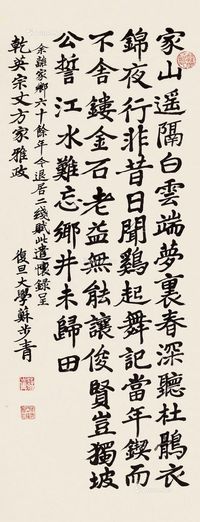 家山遥隔白雲端夢裏春深聽杜鵑衣
錦夜行非昔日聞鷄起舞記當年鍥而
不舍鏤金石老益無能讓俊賢豈獨坡
公誓江水難忘鄉井未歸田
余離家鄉六十餘年今退居二綫賦此遣懷錄呈
乾英宗文方家雅政
復旦大學蘇步青